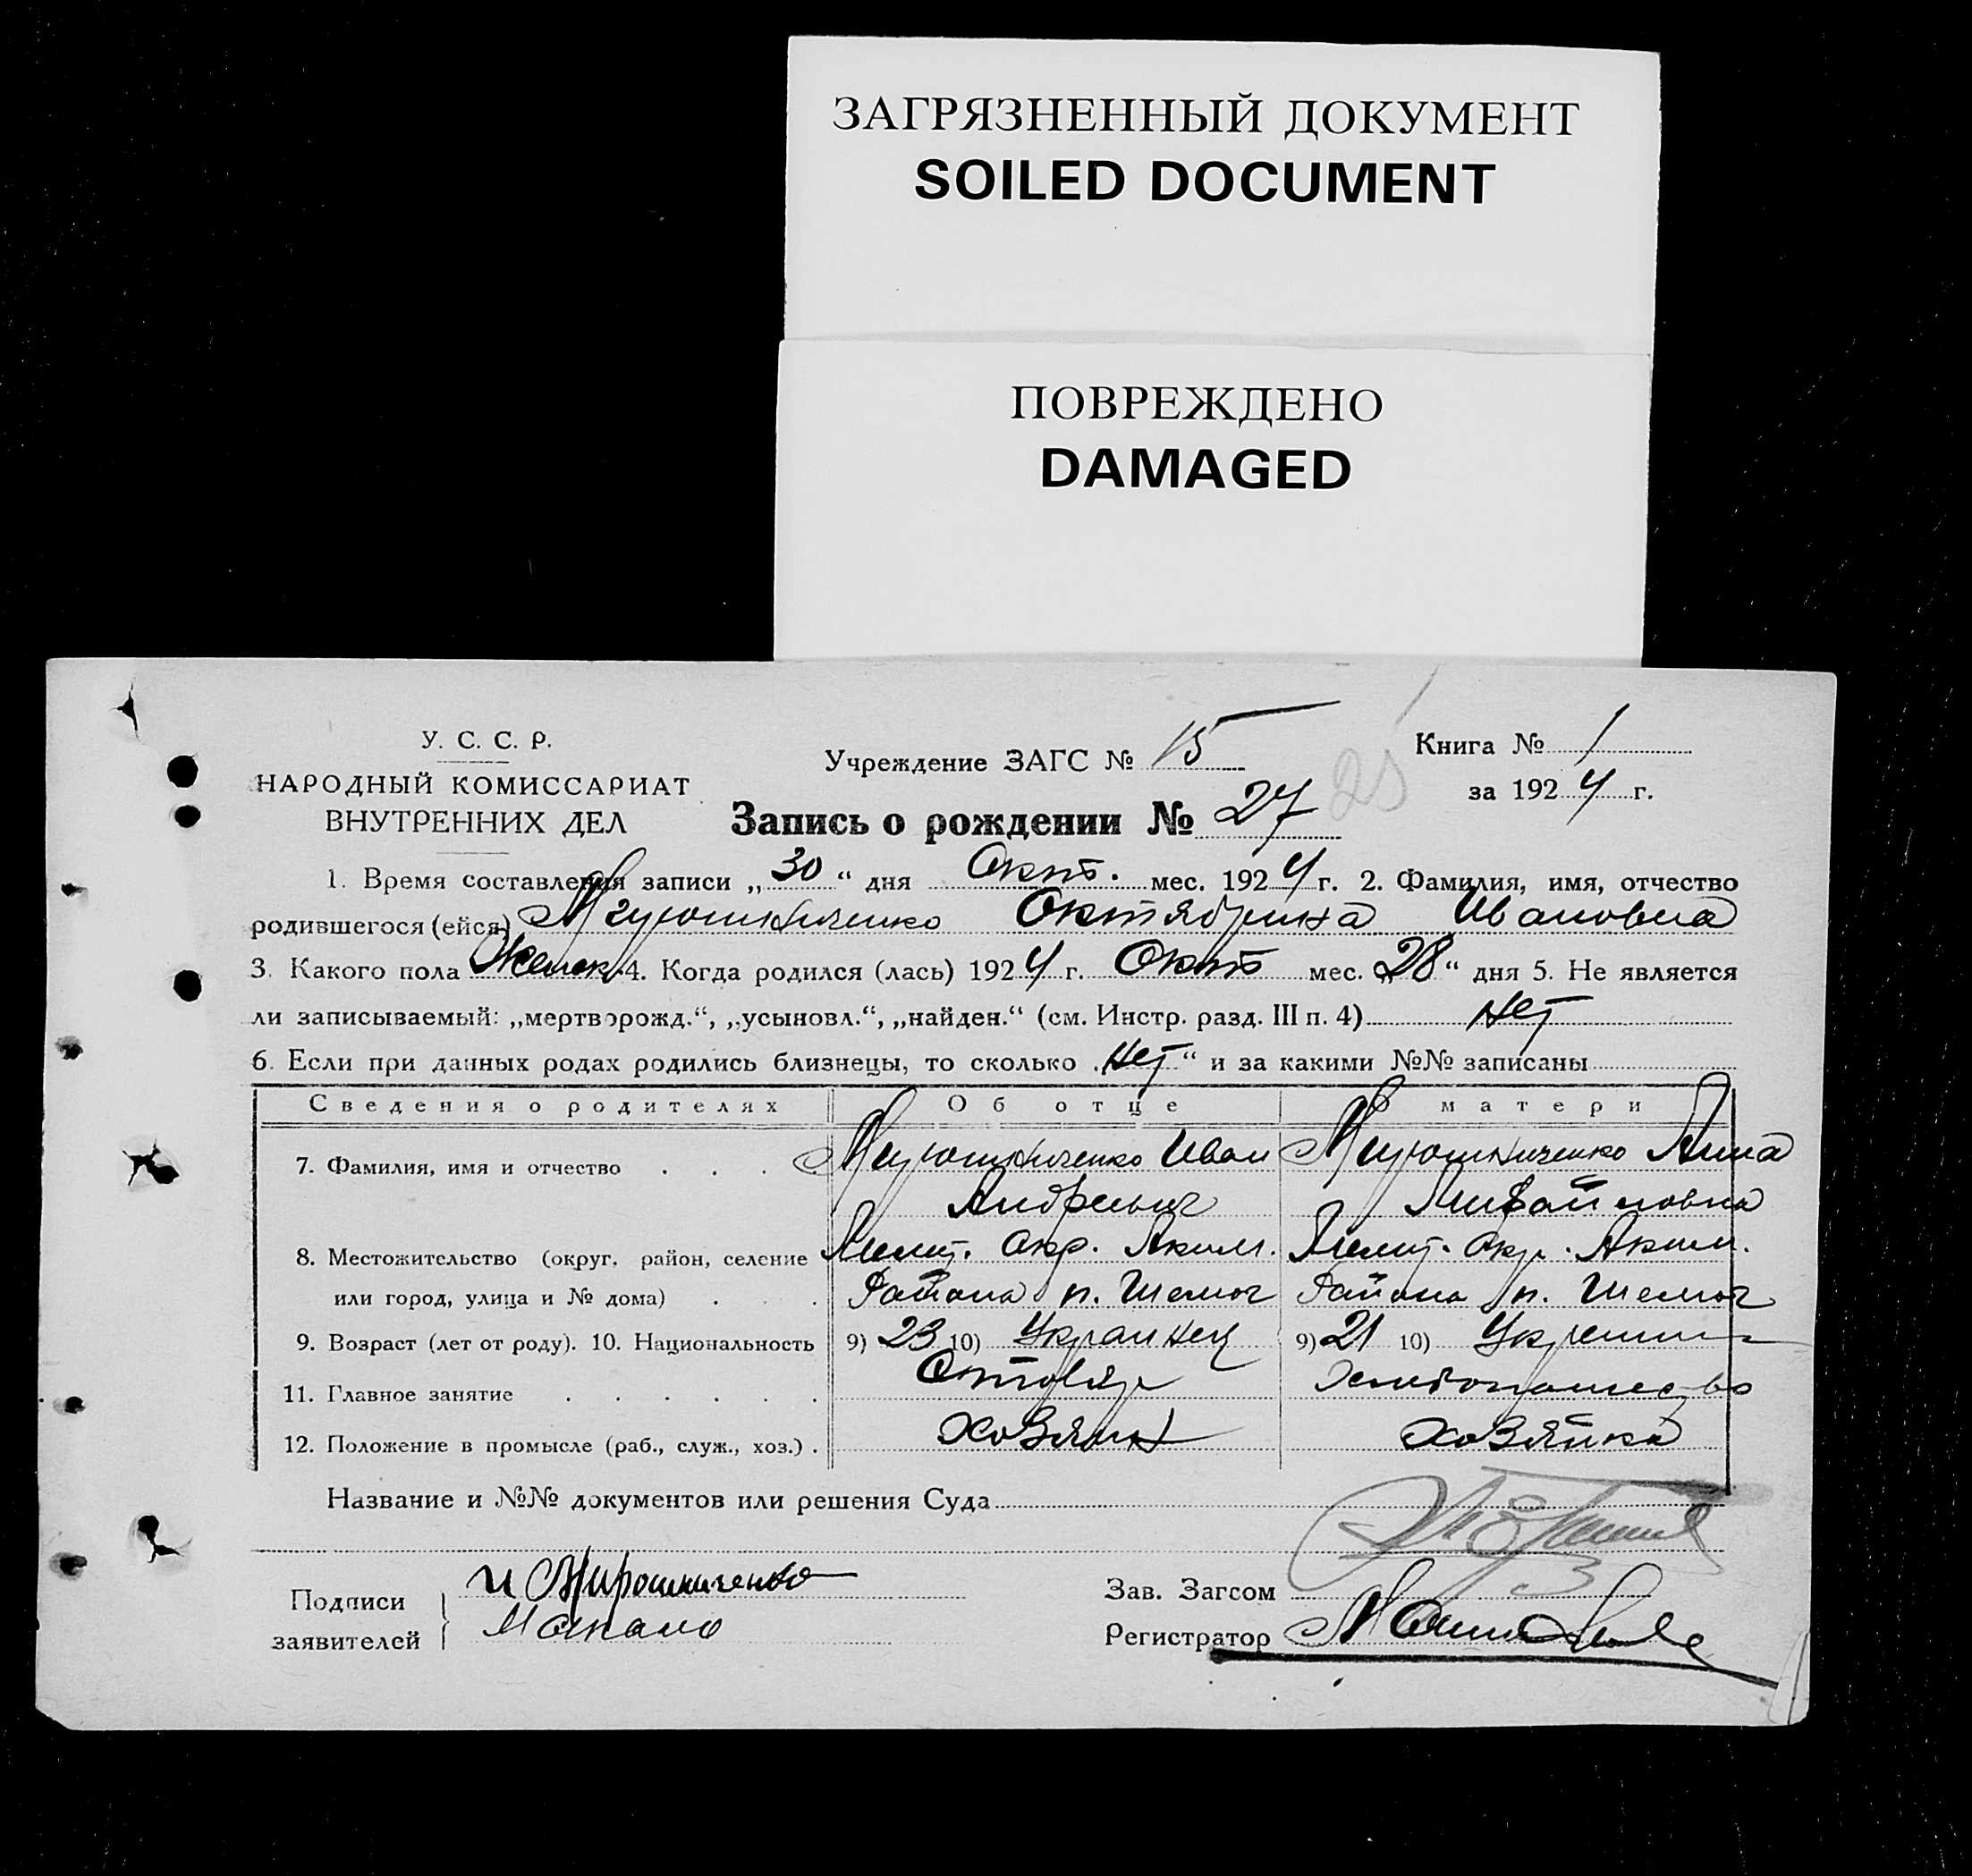 ЗАГРЯЗНЕННЫЙ ДОКУМЕНТ
SOILED DOCUMENT
ПОВРЕЖДЕНО
DAMAGED
У. С. С. Р.
НАРОДНЫЙ КОМИССАРИАТ
ВНУТРЕННИХ ДЕЛ
Учреждение ЗАГС № 15
Запись о рождении № 27
25
Книга № 1
за 1924 г.
1. Время составления записи „30“ дня Окт. мес. 1924 г. 2. Фамилия, имя, отчество
родившегося (ейся) Мирошниченко Октябрина Ивановна
3. Какого пола Женск. 4. Когда родился (лась) 1924 г. Окт мес. „28“ дня 5. Не является
ли записываемый: „мертворожд.“, „усыновл.“, „найден.“ (см. Инстр. разд. III п. 4) нет
6. Если при данных родах родились близнецы, то сколько „нет“ и за какими №№ записаны
Сведения о родителях Об отце О матери
7. Фамилия, имя и отчество . . . Мирошниченко Иван Мирошниченко Анна
Андреевич Михайловна
8. Местожительство (округ, район, селение Мелит. Окр. Аким. Мелит. Окр. Аким.
или город, улица и № дома) . . . Района п. Района п.
9. Возраст (лет от роду). 10. Национальность 9) 23 10) Украинец 9) 21 10)
11. Главное занятие . . . . . . Столяр Хлебопашество
12. Положение в промысле (раб., служ., хоз.) . Хозяин Хозяйка
Название и №№ документов или решения Суда
Подписи
заявителей
И Мирошниченко
Зав. Загсом
Регистратор